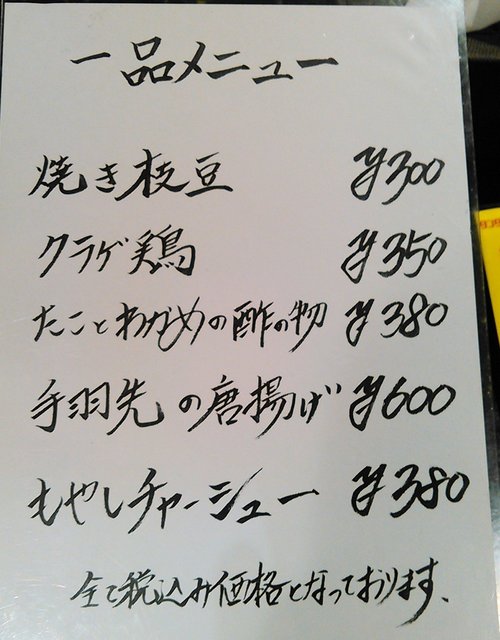 一品メニュー
焼き枝豆 ¥300
クラゲ鶏 ¥350
たことわかめの酢の物 ¥380
手羽先の唐揚げ ¥600
もやしチャーシュー ¥380
全て税込み価格となっております、